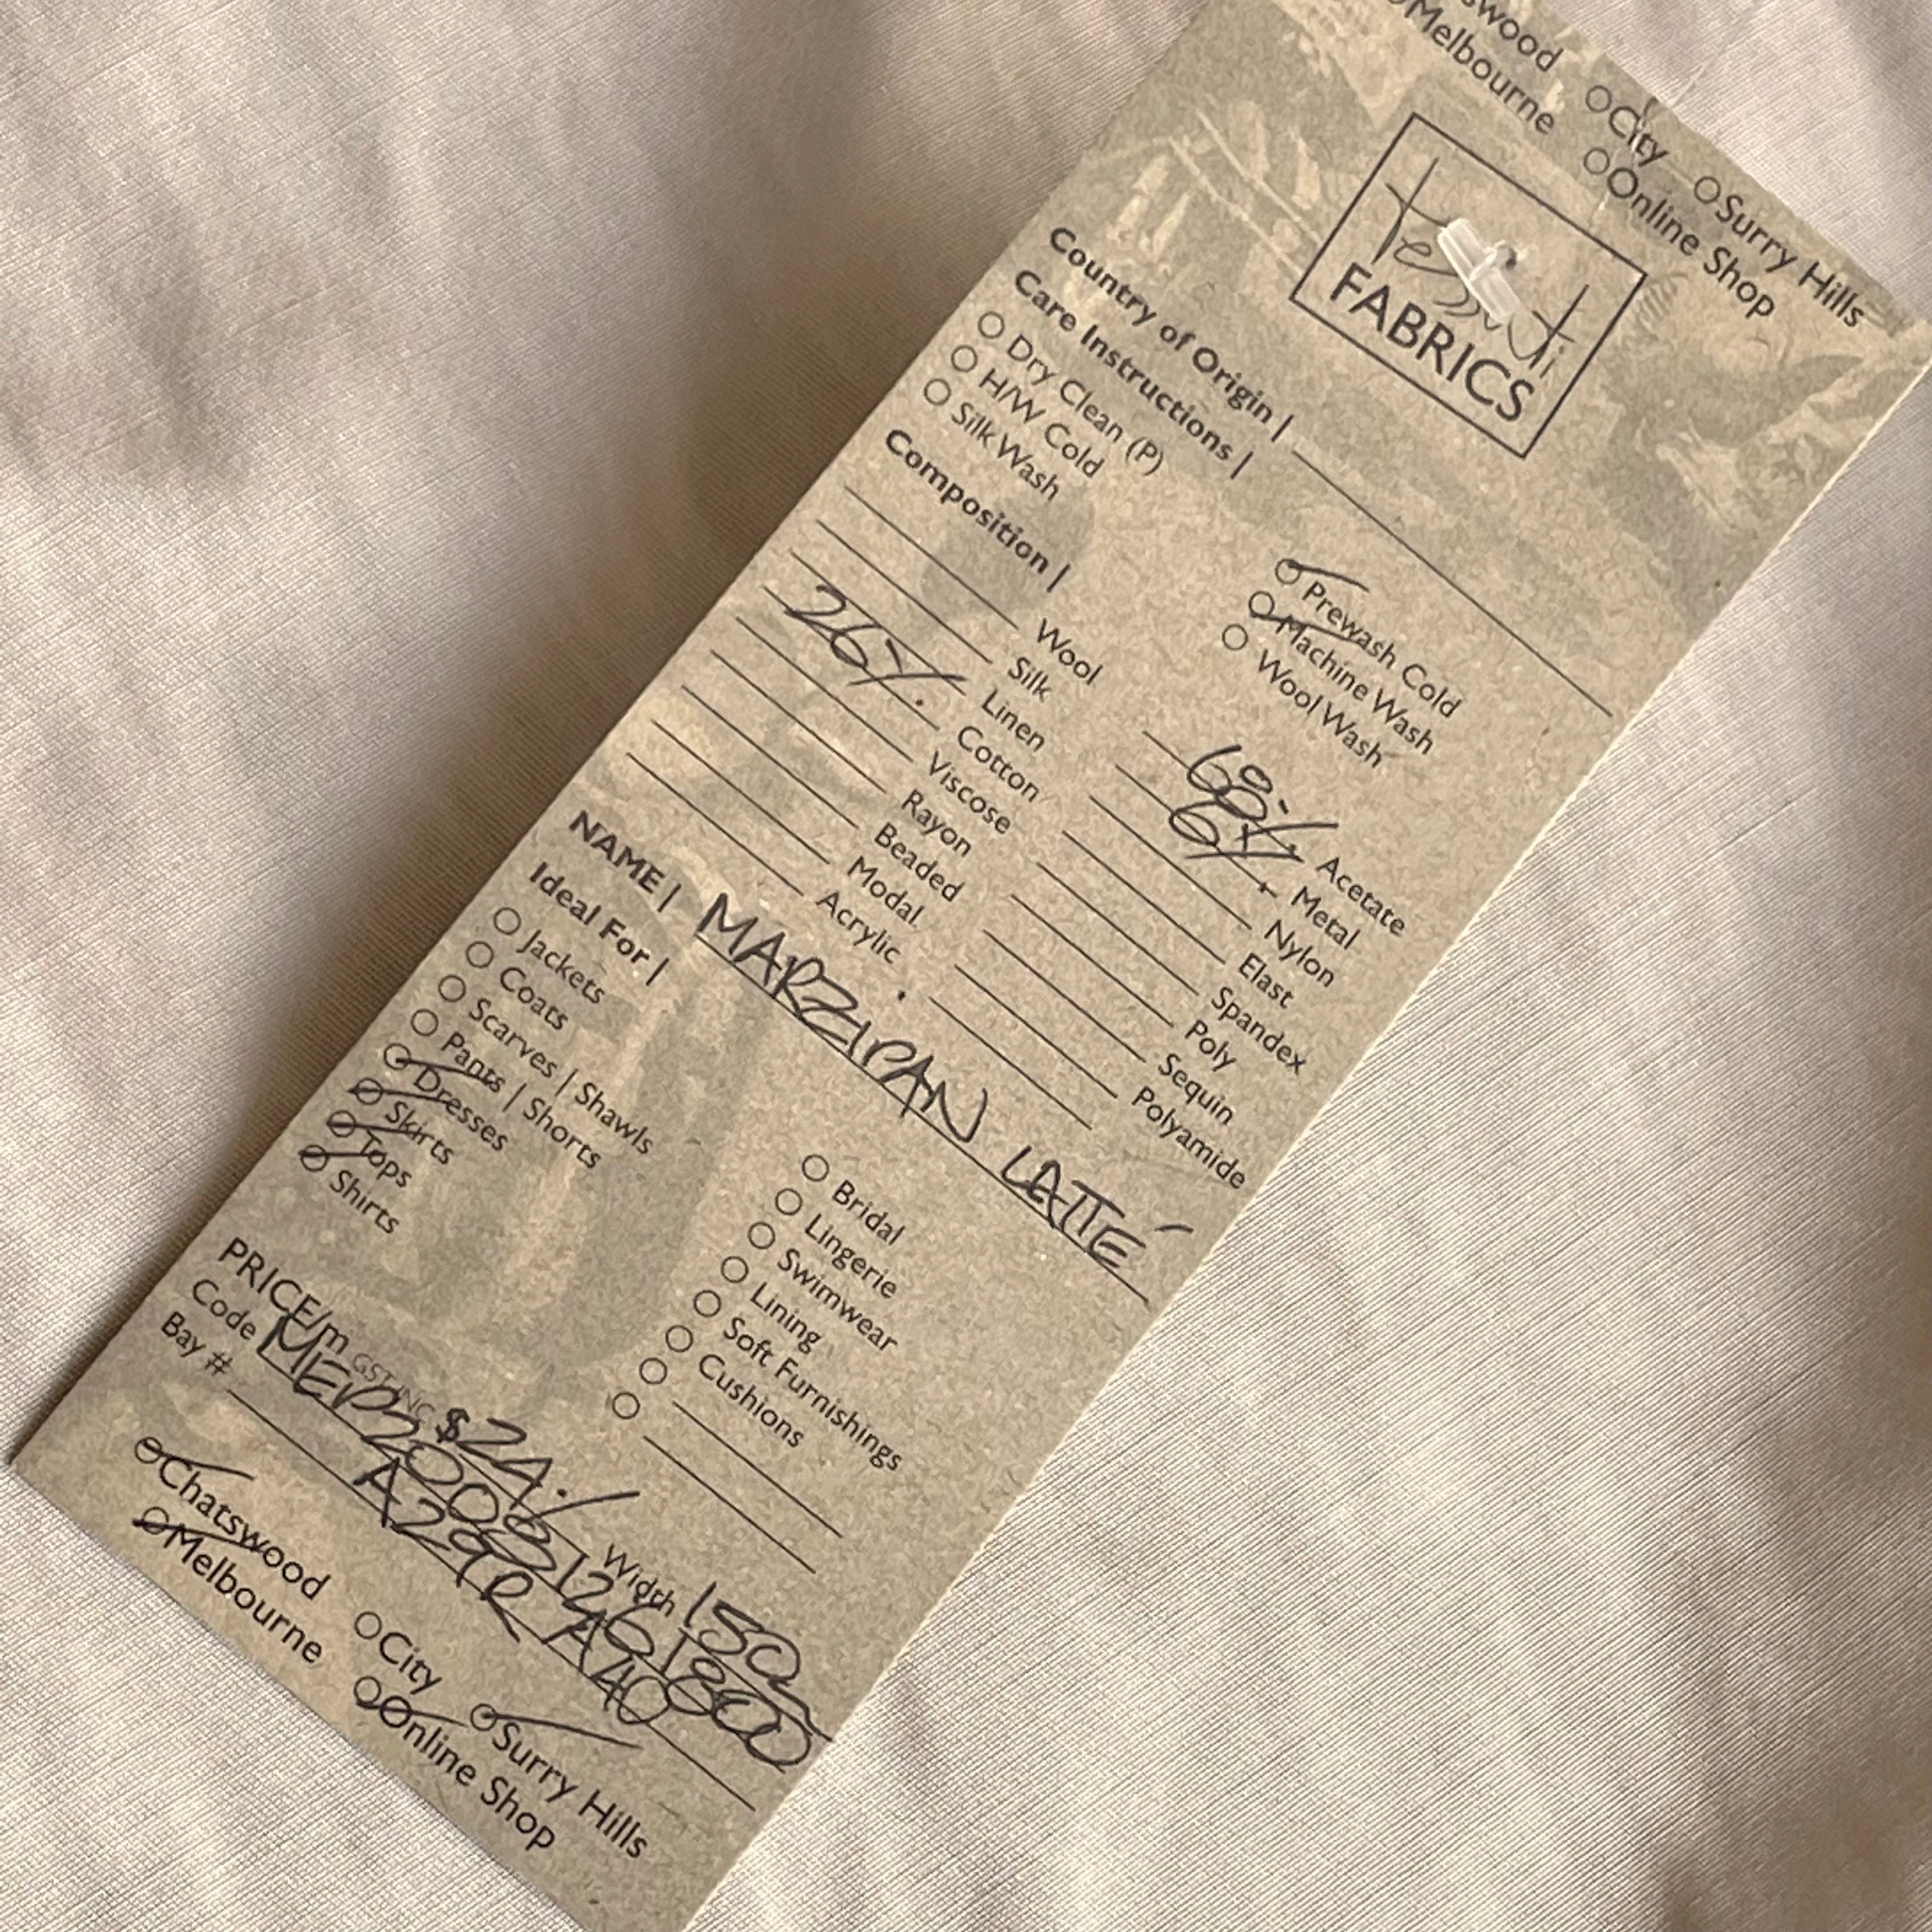 swood
Melbourne
City
Surry Hills
Online Shop
Tessuti
FABRICS
Country of Origin |
Care Instructions |
Dry Clean (P)
Prewash Cold
H/W Cold
Machine Wash
Silk Wash
Wool Wash
Composition |
Wool
68%. Acetate
Silk
6%. Metal
Linen
Nylon
26%. Cotton
Elast
Viscose
Spandex
Rayon
Poly
Beaded
Sequin
Modal
Polyamide
Acrylic
NAME | MARZIPAN LATTÉ
Ideal For |
Jackets
Bridal
Coats
Lingerie
Scarves | Shawls
Swimwear
Pants | Shorts
Lining
Dresses
Soft Furnishings
Skirts
Cushions
Tops
Shirts
PRICE/m GST INC $24. Width 150
Code
Bay # A29R A40
Chatswood
City
Surry Hills
Melbourne
Online Shop